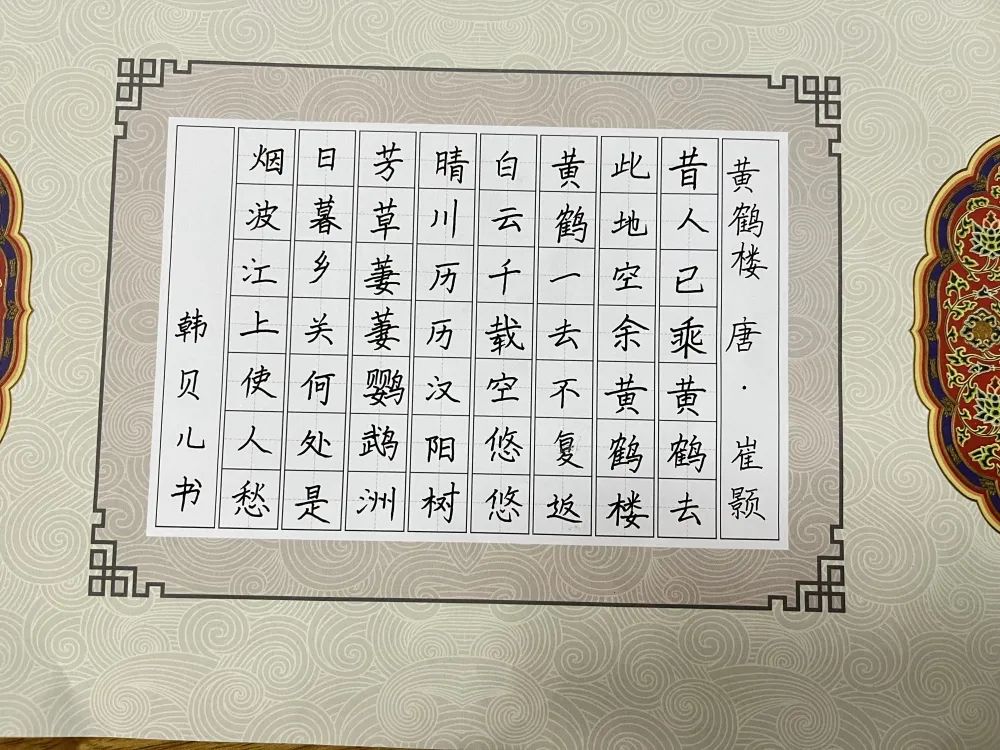 黄鹤楼 唐·崔颢
昔人已乘黄鹤去
此地空余黄鹤楼
黄鹤一去不复返
白云千载空悠悠
晴川历历汉阳树
芳草萋萋鹦鹉洲
日暮乡关何处是
烟波江上使人愁
韩贝儿书